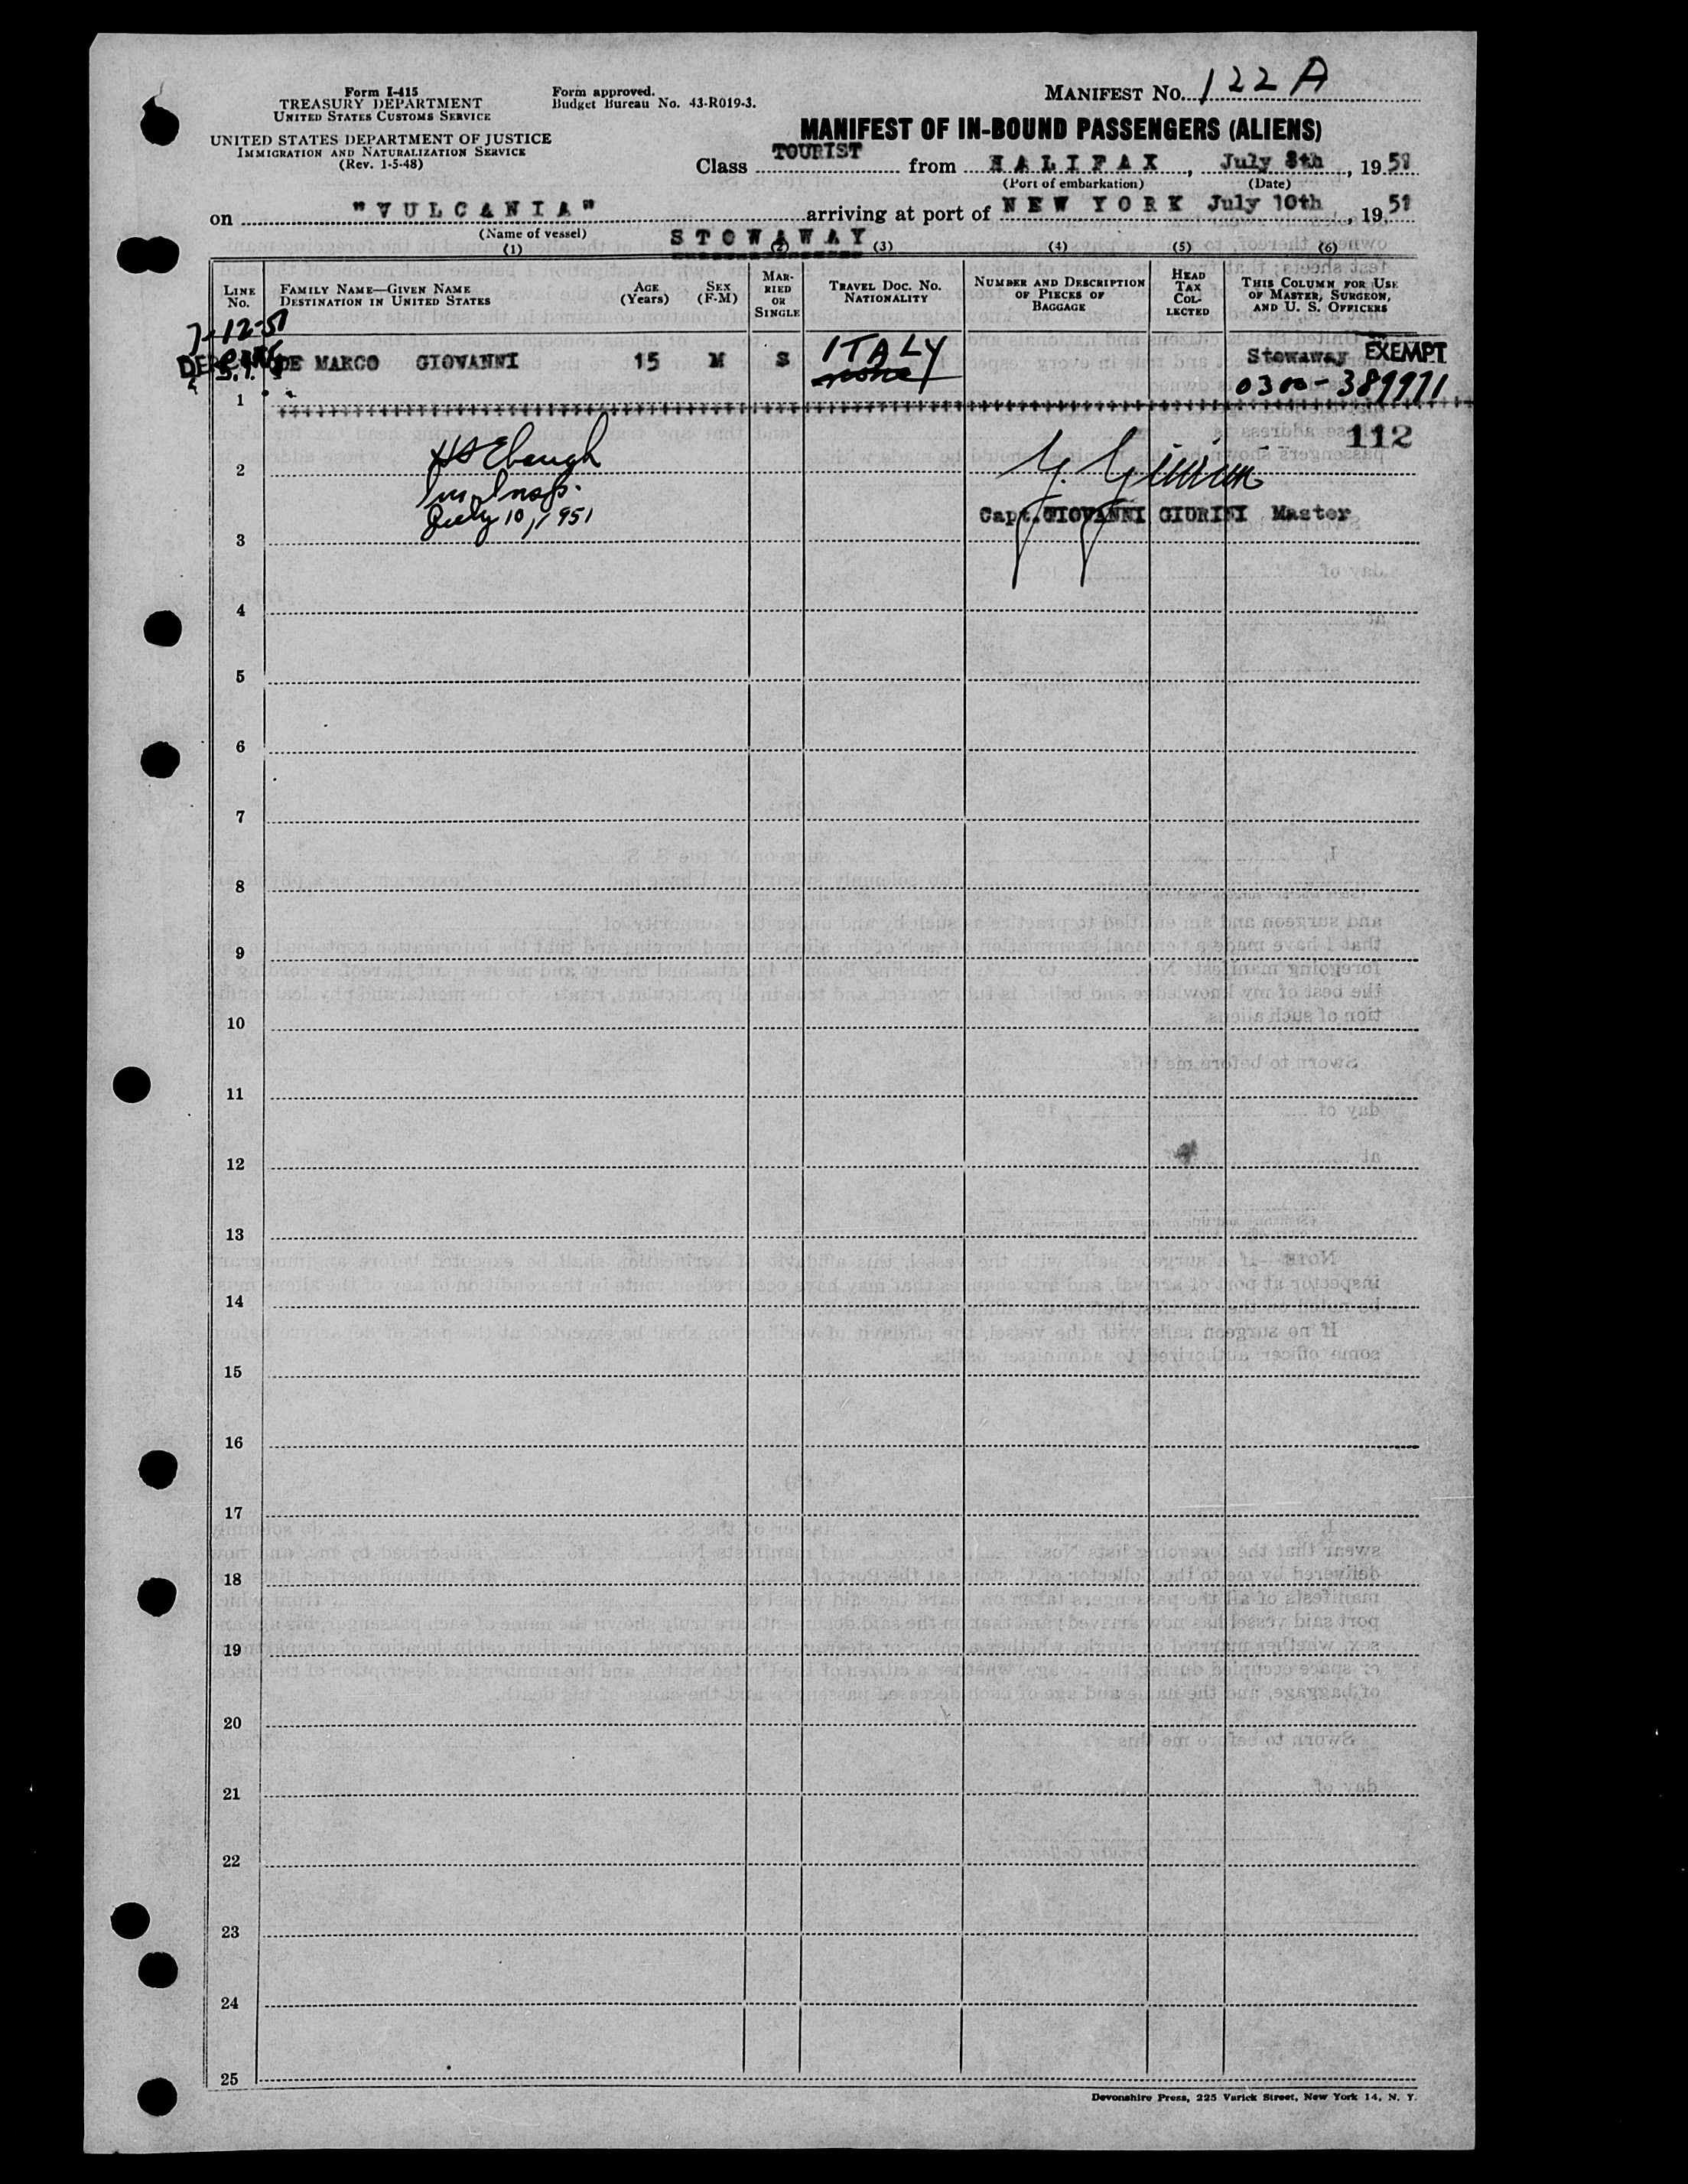 Form I-415
TREASURY DEPARTMENT
UNITED STATES CUSTOMS SERVICE
UNITED STATES DEPARTMENT OF JUSTICE
IMMIGRATION AND NATURALIZATION SERVICE
(Rev. 1-5-48)
Form approved.
Budget Bureau No. 43-R019-3.
MANIFEST NO. 122 A
MANIFEST OF IN-BOUND PASSENGERS (ALIENS)
Class TOURIST from HALIFAX, July 8th, 1951
(Port of embarkation) (Date)
on "VULCANIA" arriving at port of NEW YORK July 10th, 1951
(Name of vessel)
STOWAWAY
(1) (2) (3) (4) (5) (6)
LINE NO.
FAMILY NAME—GIVEN NAME
DESTINATION IN UNITED STATES
AGE (Years)
SEX (F-M)
MARRIED OR SINGLE
TRAVEL DOC. NO.
NATIONALITY
NUMBER AND DESCRIPTION OF PIECES OF BAGGAGE
HEAD TAX COLLECTED
THIS COLUMN FOR USE OF MASTER, SURGEON, AND U. S. OFFICERS
7-12-51
DE MARCO GIOVANNI 15 M S ITALY Stowaway EXEMPT
none
0300-389971
1
112
2
H S Ebaugh
Im. Insp.
July 10, 1951
G. Giurini
Capt. GIOVANNI GIURINI Master
3
4
5
6
7
8
9
10
11
12
13
14
15
16
17
18
19
20
21
22
23
24
25
Devonshire Press, 225 Varick Street, New York 14, N. Y.